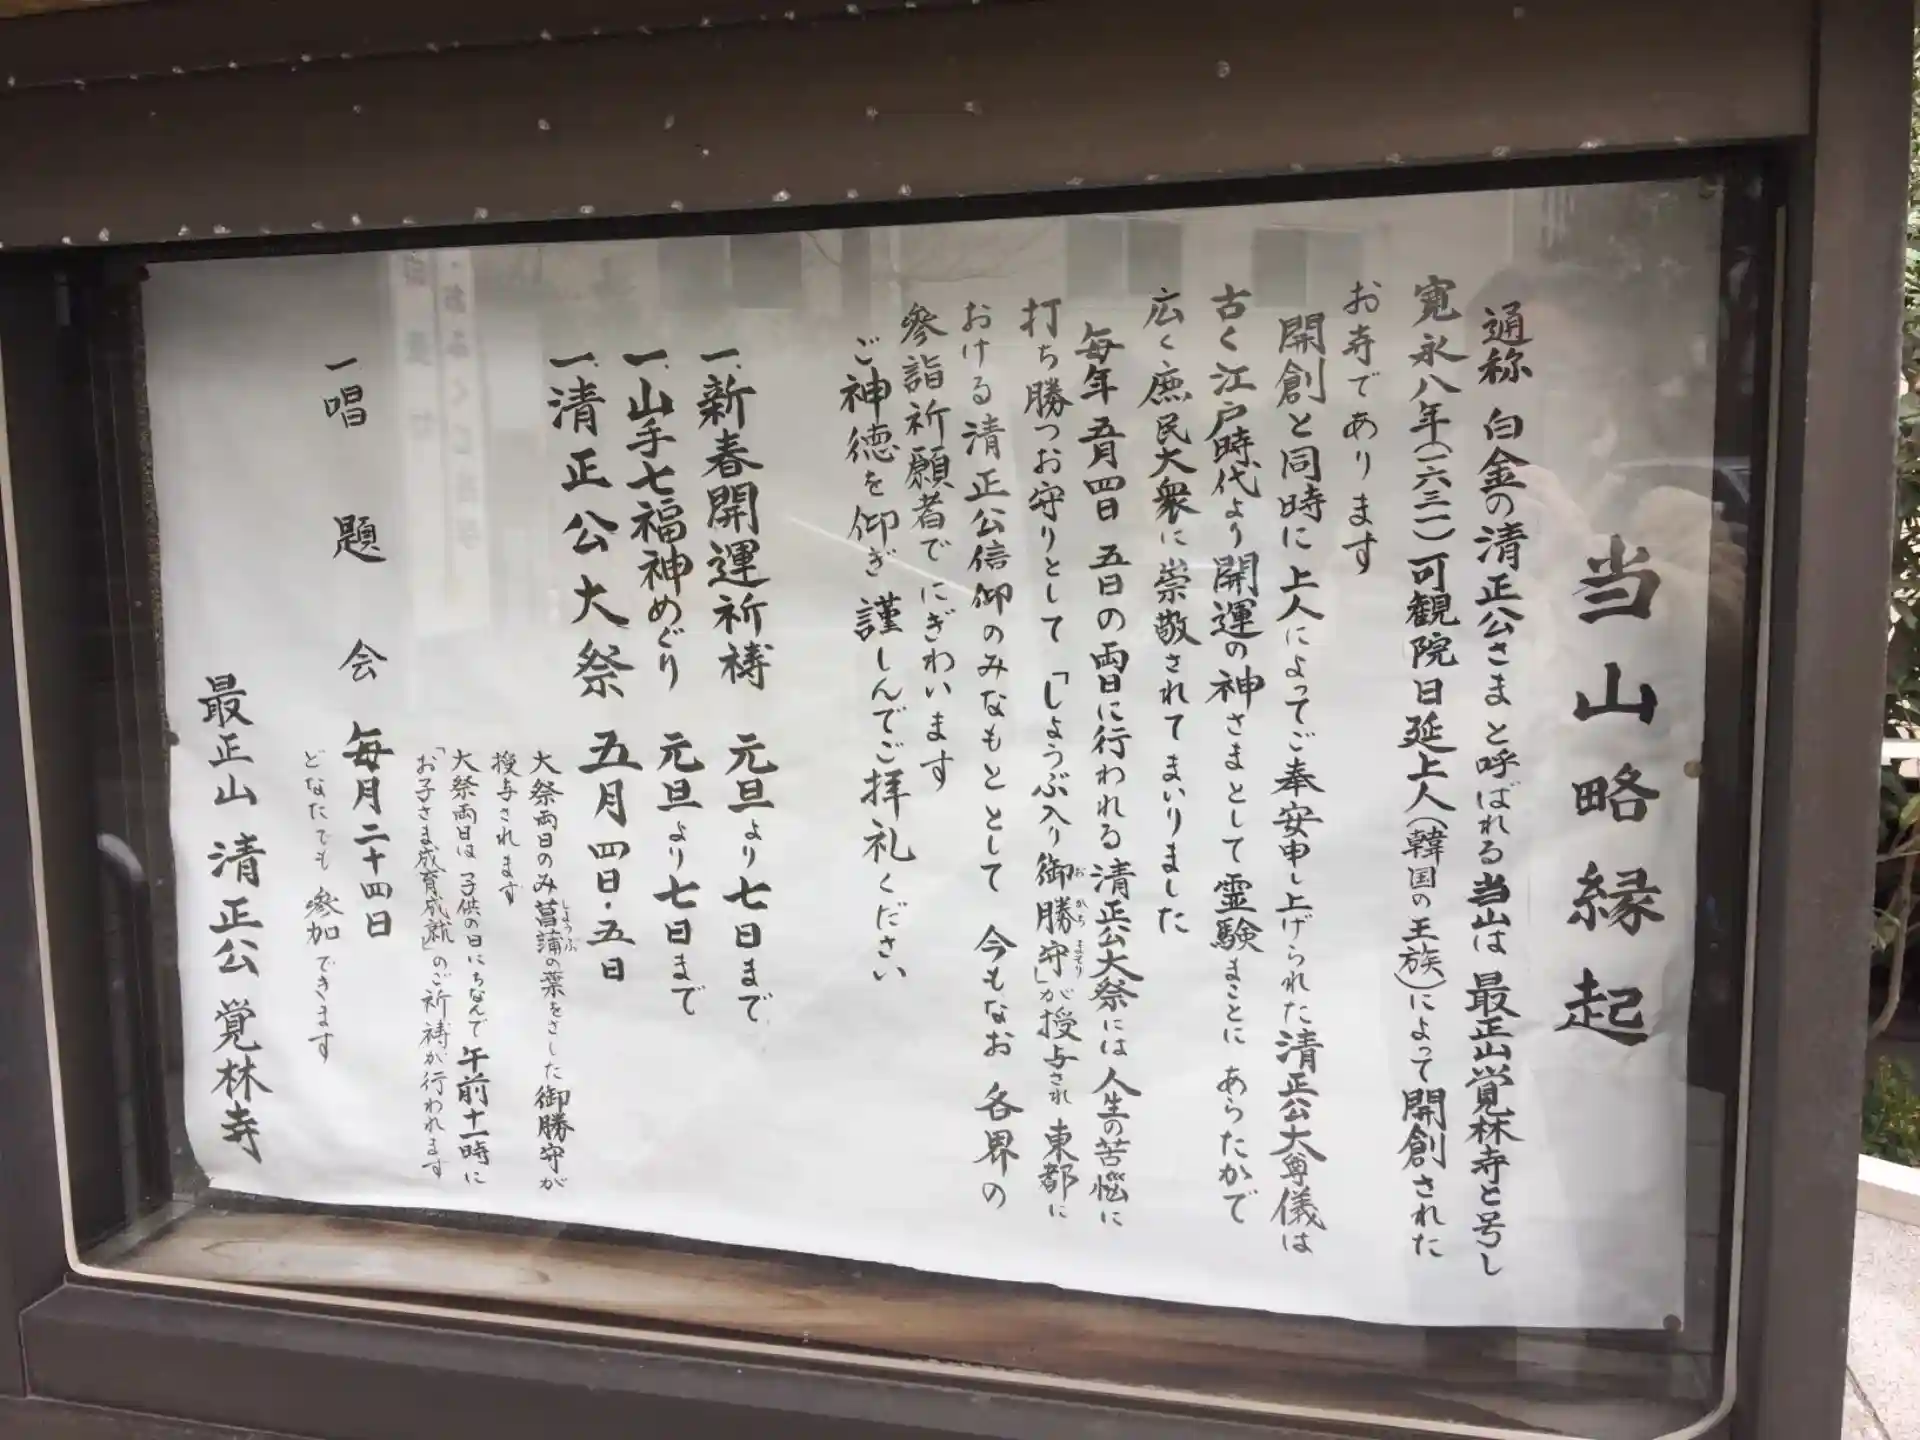 当山略縁起
通称 白金の清正公さまと呼ばれる当山は 最正山覚林寺と号し
寛永八年(一六三一)可観院日延上人(韓国の王族)によって開創された
お寺であります
開創と同時に上人によってご奉安申し上げられた清正公大尊儀は
古く江戸時代より開運の神さまとして霊験まことにあらたかで
広く庶民大衆に崇敬されてまいりました
毎年五月四日 五日の両日に行われる清正公大祭には人生の苦悩に
打ち勝つお守りとして「しょうぶ入り御勝守」が授与され 東都に
おける清正公信仰のみなもととして 今もなお 各界の
参詣祈願者でにぎわいます
ご神徳を仰ぎ謹しんでご拝礼ください
一、新春開運祈祷 元旦より七日まで
一、山手七福神めぐり 元旦より七日まで
一、清正公大祭 五月四日・五日
大祭両日のみ菖蒲の葉をさした御勝守が
授与されます
大祭両日は子供の日にちなんで午前十一時に
「お子さま成育成就」のご祈祷が行われます
一唱題会 毎月二十四日
どなたでも参加できます
最正山 清正公 覚林寺